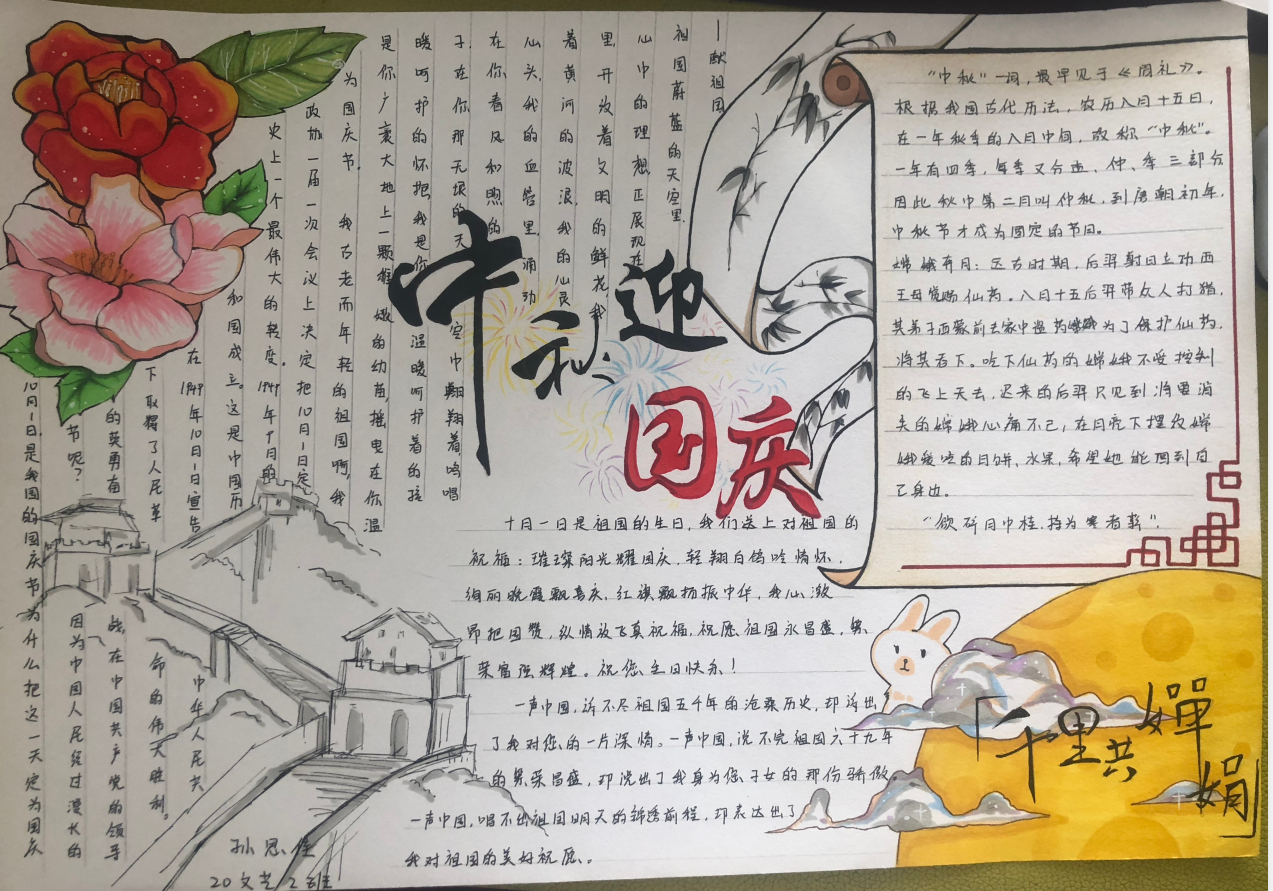 中秋迎
国庆
—献祖国
祖国蔚蓝的天空里
心中的理想正展现在
里开放着文明的鲜花我
着黄河的波浪我的心灵
心头我的血管里涌动
在你看风和煦的
子在你那无垠的天空中翱翔着鸣唱
暖呵护的怀抱我是你温暖呵护着的孩
是你广袤大地上一颗摇曳的幼苗摇曳在你温
为国庆节。我古老而年轻的祖国啊,我
政协一届一次会议上决定把10月1日定
史上一个最伟大的转变。1949年9月的
和国成立。这是中国历
在1949年10月1日宣告
下取得了人民革
命的伟大胜利。
中华人民共
的英勇奋
战,在中国共产党的领导
节呢?
因为中国人民经过漫长的
10月1日是我国的国庆节为什么把这一天定为国庆
“中秋”一词,最早见于《周礼》。
根据我国古代历法,农历八月十五日,
在一年秋季的八月中间,故称“中秋”。
一年有四季,每季又分孟、仲、季三部分
因此秋中第二月叫仲秋,到唐朝初年,
中秋节才成为固定的节日。
嫦娥奔月:远古时期,后羿射日立功西
王母赏赐仙药。八月十五后羿带众人打猎,
其弟子西蒙前去家中逼药嫦娥为了保护仙药,
将其吞下。吃下仙药的嫦娥不受控制
的飞上天去,迟来的后羿只见到消
失的嫦娥心痛不已,在月亮下摆放嫦
娥爱吃的月饼、水果,希望她能回到自
己身边。
“欲斫月中桂,持为寒者薪”.
十月一日是祖国的生日,我们送上对祖国的
祝福:璀璨阳光耀国庆,轻翔白鸽吟情怀,
绚丽晚霞飘喜庆,红旗飘扬振中华,我心激
昂把国赞,纵情放飞真祝福,祝愿祖国永昌盛,繁
荣富强辉煌。祝您生日快乐!
一声中国,诉不尽祖国五千年的沧桑历史,却诉出
了我对您的一片深情。一声中国,说不完祖国六十九年
的繁荣昌盛,却说出了我身为您子女的那份骄傲。
一声中国,唱不出祖国明天的锦绣前程,却表达出了
我对祖国的美好祝愿。
「千里共婵
娟」
孙思佳
20文艺2班